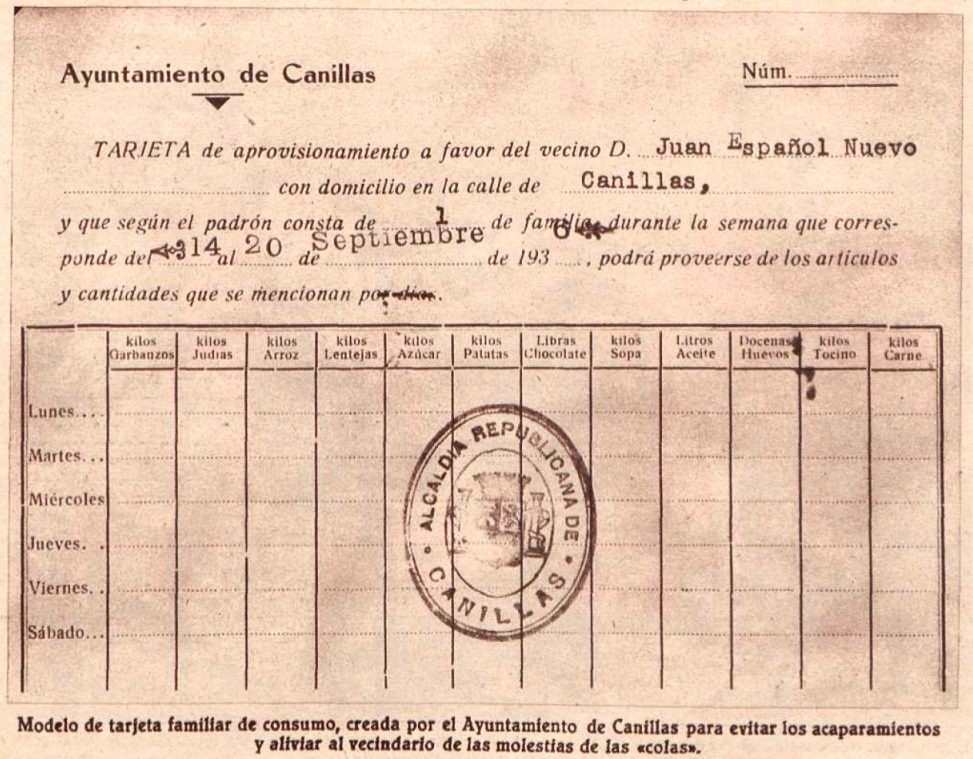 Ayuntamiento de Canillas
Núm.
TARJETA de aprovisionamiento a favor del vecino D. Juan Español Nuevo
con domicilio en la calle de Canillas,
y que según el padrón consta de 1 de familia durante la semana que corres-
ponde del 14 al 20 de Septiembre de 193 6, podrá proveerse de los artículos
y cantidades que se mencionan por días.
kilos Garbanzos kilos Judías kilos Arroz kilos Lentejas kilos Azúcar kilos Patatas Libras Chocolate kilos Sopa Litros Aceite Docenas Huevos kilos Tocino kilos Carne
Lunes....
Martes...
Miércoles
Jueves..
Viernes..
Sábado...
ALCALDIA REPUBLICANA DE
CANILLAS
Modelo de tarjeta familiar de consumo, creada por el Ayuntamiento de Canillas para evitar los acaparamientos
y aliviar al vecindario de las molestias de las «colas».